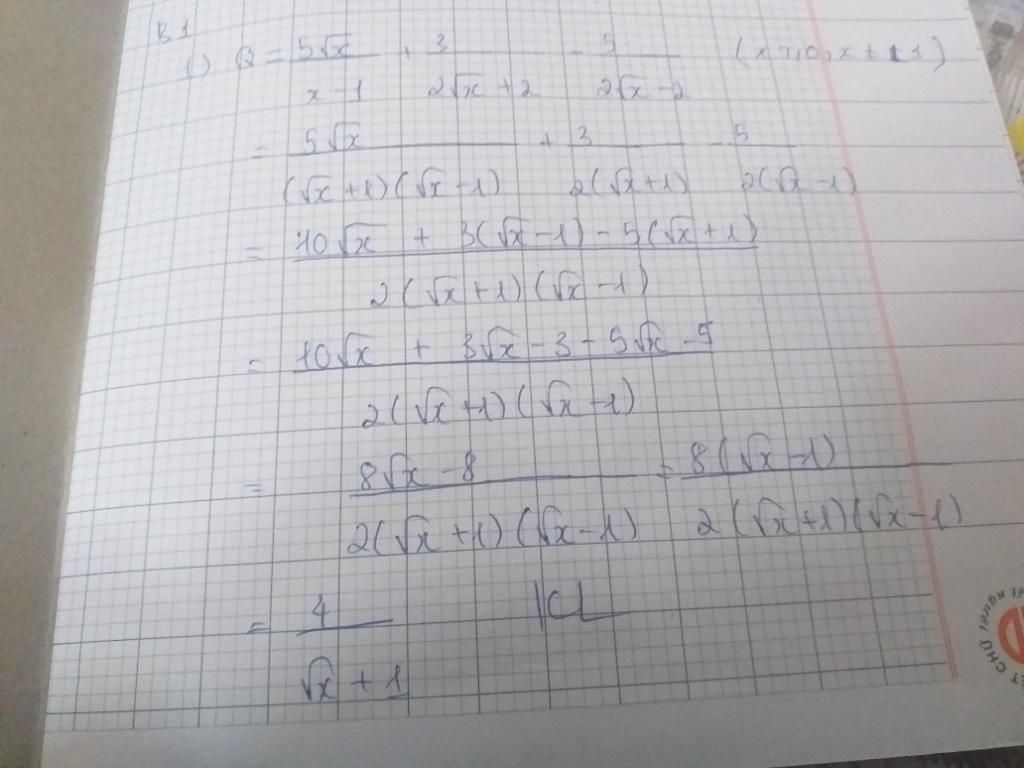 B1
1) Q = 5√x / (x - 1) + 3 / (2√x + 2) - 5 / (2√x - 2) (x ≥ 0, x ≠ 1)
= 5√x / ((√x + 1)(√x - 1)) + 3 / (2(√x + 1)) - 5 / (2(√x - 1))
= (10√x + 3(√x - 1) - 5(√x + 1)) / (2(√x + 1)(√x - 1))
= (10√x + 3√x - 3 - 5√x - 5) / (2(√x + 1)(√x - 1))
= (8√x - 8) / (2(√x + 1)(√x - 1)) = 8(√x - 1) / (2(√x + 1)(√x - 1))
= 4 / (√x + 1) KL